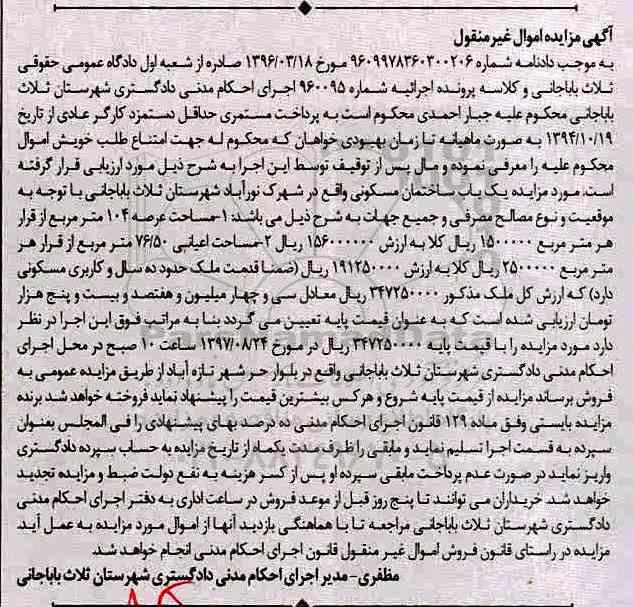 آگهی مزایده اموال غیر منقول
به موجب دادنامه شماره ۹۶۰۹۹۷۸۳۶۰۳۰۰۲۰۶ مورخ ۱۳۹۶/۰۳/۱۸ صادره از شعبه اول دادگاه عمومی حقوقی
ثلاث باباجانی و کلاسه پرونده اجرائیه شماره ۹۶۰۰۹۵ اجرای احکام مدنی دادگستری شهرستان ثلاث
باباجانی محکوم علیه جبار احمدی محکوم است به پرداخت مستمری حداقل دستمزد کارگر عادی از تاریخ
۱۳۹۴/۱۰/۱۹ به صورت ماهیانه تا زمان بهبودی خواهان که محکوم له جهت امتناع طلب خویش اموال
محکوم علیه را معرفی نموده و مال پس از توقیف توسط این اجرا به شرح ذیل مورد ارزیابی قرار گرفته
است. مورد مزایده یک باب ساختمان مسکونی واقع در شهرک نورآباد شهرستان ثلاث باباجانی با توجه به
موقعیت و نوع مصالح مصرفی و جمیع جهات به شرح ذیل می باشد: ۱-مساحت عرصه ۱۰۴ متر مربع از قرار
هر متر مربع ۱۵۰۰۰۰۰ ریال کلا به ارزش ۱۵۶۰۰۰۰۰۰ ریال ۲-مساحت اعیانی ۷۶/۵۰ متر مربع از قرار هر
متر مربع ۲۵۰۰۰۰۰ ریال کلا به ارزش ۱۹۱۲۵۰۰۰۰ ریال (ضمنا قدمت ملک حدود ده سال و کاربری مسکونی
دارد) که ارزش کل ملک مذکور ۳۴۷۲۵۰۰۰۰ ریال معادل سی و چهار میلیون و هفتصد و بیست و پنج هزار
تومان ارزیابی شده است که به عنوان قیمت پایه تعیین می گردد بنا به مراتب فوق این اجرا در نظر
دارد مورد مزایده را با قیمت پایه ۳۴۷۲۵۰۰۰۰ ریال در مورخ ۱۳۹۷/۰۸/۲۴ ساعت ۱۰ صبح در محل اجرای
احکام مدنی دادگستری شهرستان ثلاث باباجانی واقع در بلوار حر شهر تازه آباد از طریق مزایده عمومی به
فروش برساند مزایده از قیمت پایه شروع و هر کس بیشترین قیمت را پیشنهاد نماید فروخته خواهد شد برنده
مزایده بایستی وفق ماده ۱۲۹ قانون اجرای احکام مدنی ده درصد بهای پیشنهادی را فی المجلس بعنوان
سپرده به قسمت اجرا تسلیم نماید و مابقی را ظرف مدت یکماه از تاریخ مزایده به حساب سپرده دادگستری
واریز نماید در صورت عدم پرداخت مابقی سپرده او پس از کسر هزینه به نفع دولت ضبط و مزایده تجدید
خواهد شد. خریداران می توانند تا پنج روز قبل از موعد فروش در ساعت اداری به دفتر اجرای احکام مدنی
دادگستری شهرستان ثلاث باباجانی مراجعه تا با هماهنگی بازدید آنها از اموال مورد مزایده به عمل آید.
مزایده در راستای قانون فروش اموال غیر منقول قانون اجرای احکام مدنی انجام خواهد شد.
مظفری- مدیر اجرای احکام مدنی دادگستری شهرستان ثلاث باباجانی